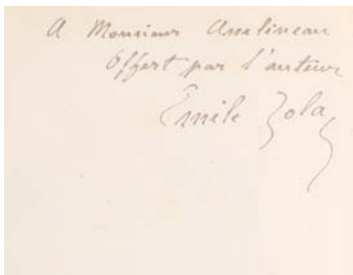 A Monsieur Amelineau
Offert par l'auteur
Emile Zola